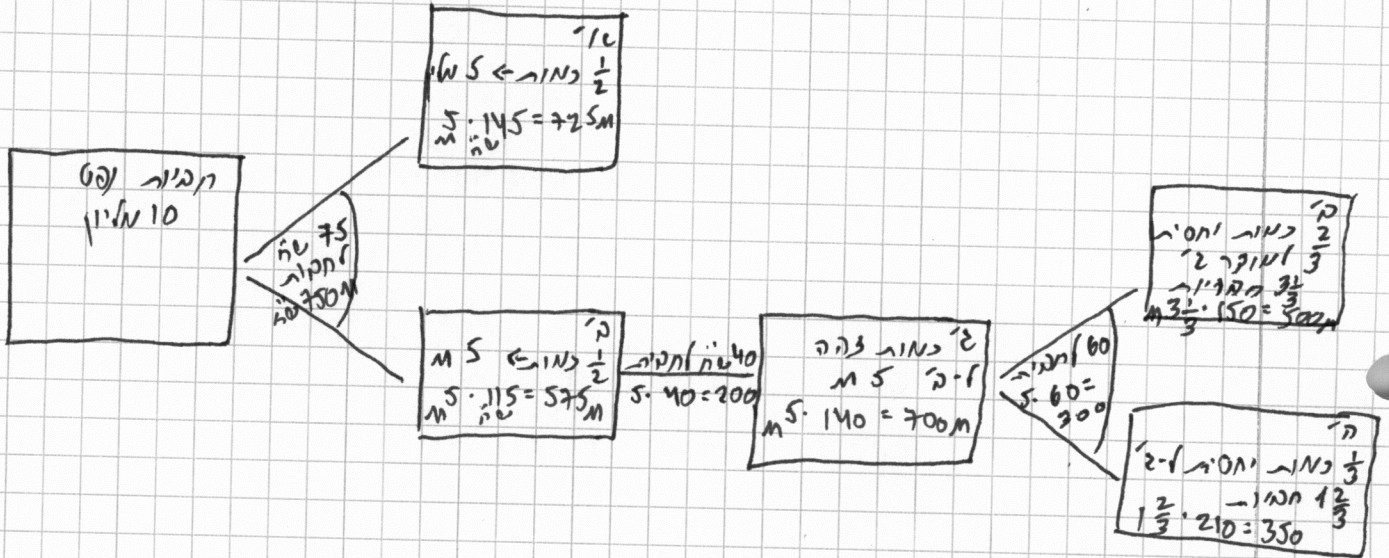 חביות נפט
10 מליון
75 שח
לחבית
750M שח
א'
1/2 כמות -> 5 מלי
5M · 145 שח = 725M
ב'
1/2 כמות -> 5 M
5M · 115 שח = 575M
40 שח לחבית
5 · 40 = 200
כמות זהה
ל-ב' 5 M
5M · 140 = 700M
60 לחבית
5 · 60 =
300
2/3 כמות יחסית
למוצר
3 1/3 חביות
3 1/3 M · 150 = 500M
ה'
1/3 כמות יחסית
1 2/3 חביות
1 2/3 · 210 = 350